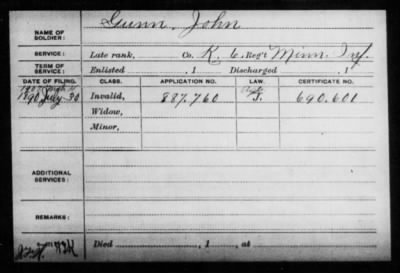 NAME OF SOLDIER: Gunn, John
SERVICE: Late rank, Co. K, 6 Reg't Minn. Inf.
TERM OF SERVICE: Enlisted , 1 Discharged , 1
DATE OF FILING. CLASS. APPLICATION NO. LAW. CERTIFICATE NO.
1890 July 30 Invalid, 887.760 J. 690.601
Widow,
Minor,
ADDITIONAL SERVICES:
REMARKS:
Died , 1 , at